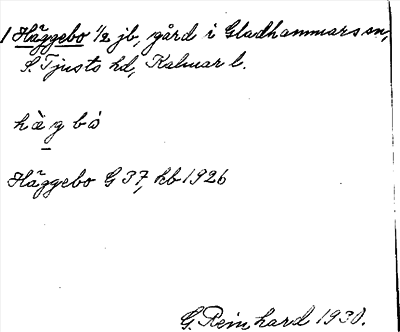 1 Häggebo 1/2 jb, gård i Gladhammars sn,
S. Tjusts hd, Kalmar l.
hàgbò
Häggebo G 37, kb 1926
G. Reinhard 1930.